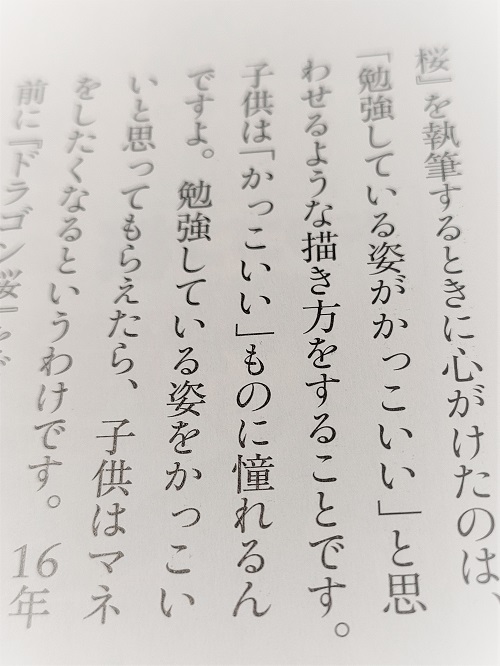 桜』を執筆するときに心がけたのは、
「勉強している姿がかっこいい」と思
わせるような描き方をすることです。
子供は「かっこいい」ものに憧れるん
ですよ。勉強している姿をかっこい
いと思ってもらえたら、子供はマネ
をしたくなるというわけです。16年
前に『ドラゴン桜』